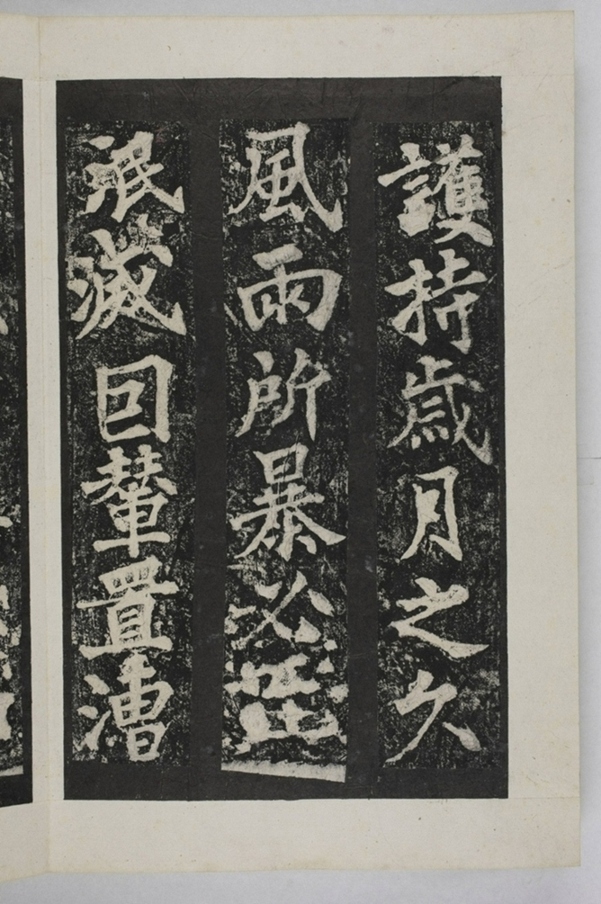 護持歲月之久
風雨所暴必
泯滅囙輦置漕